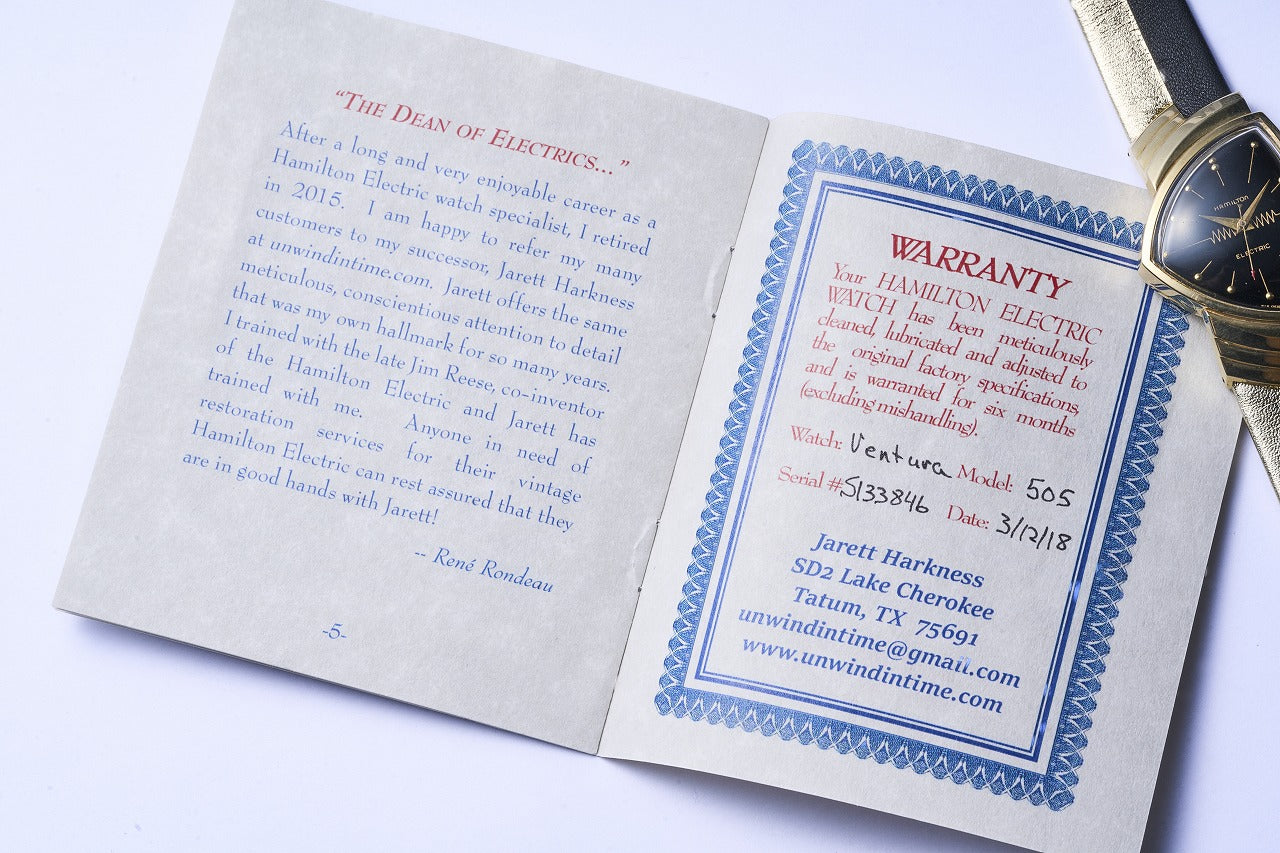 “THE DEAN OF ELECTRICS...”
After a long and very enjoyable career as a
Hamilton Electric watch specialist, I retired
in 2015. I am happy to refer my many
customers to my successor, Jarett Harkness
at unwindintime.com. Jarett offers the same
meticulous, conscientious attention to detail
that was my own hallmark for so many years.
I trained with the late Jim Reese, co-inventor
of the Hamilton Electric and Jarett has
trained with me. Anyone in need of
restoration services for their vintage
Hamilton Electric can rest assured that they
are in good hands with Jarett!
-- René Rondeau
-5-
WARRANTY
Your HAMILTON ELECTRIC
WATCH has been meticulously
cleaned, lubricated and adjusted to
the original factory specifications,
and is warranted for six months
(excluding mishandling).
Watch: Ventura Model: 505
Serial #: S133846 Date: 3/12/18
Jarett Harkness
SD2 Lake Cherokee
Tatum, TX 75691
unwindintime@gmail.com
www.unwindintime.com
HAMILTON
ELECTRIC